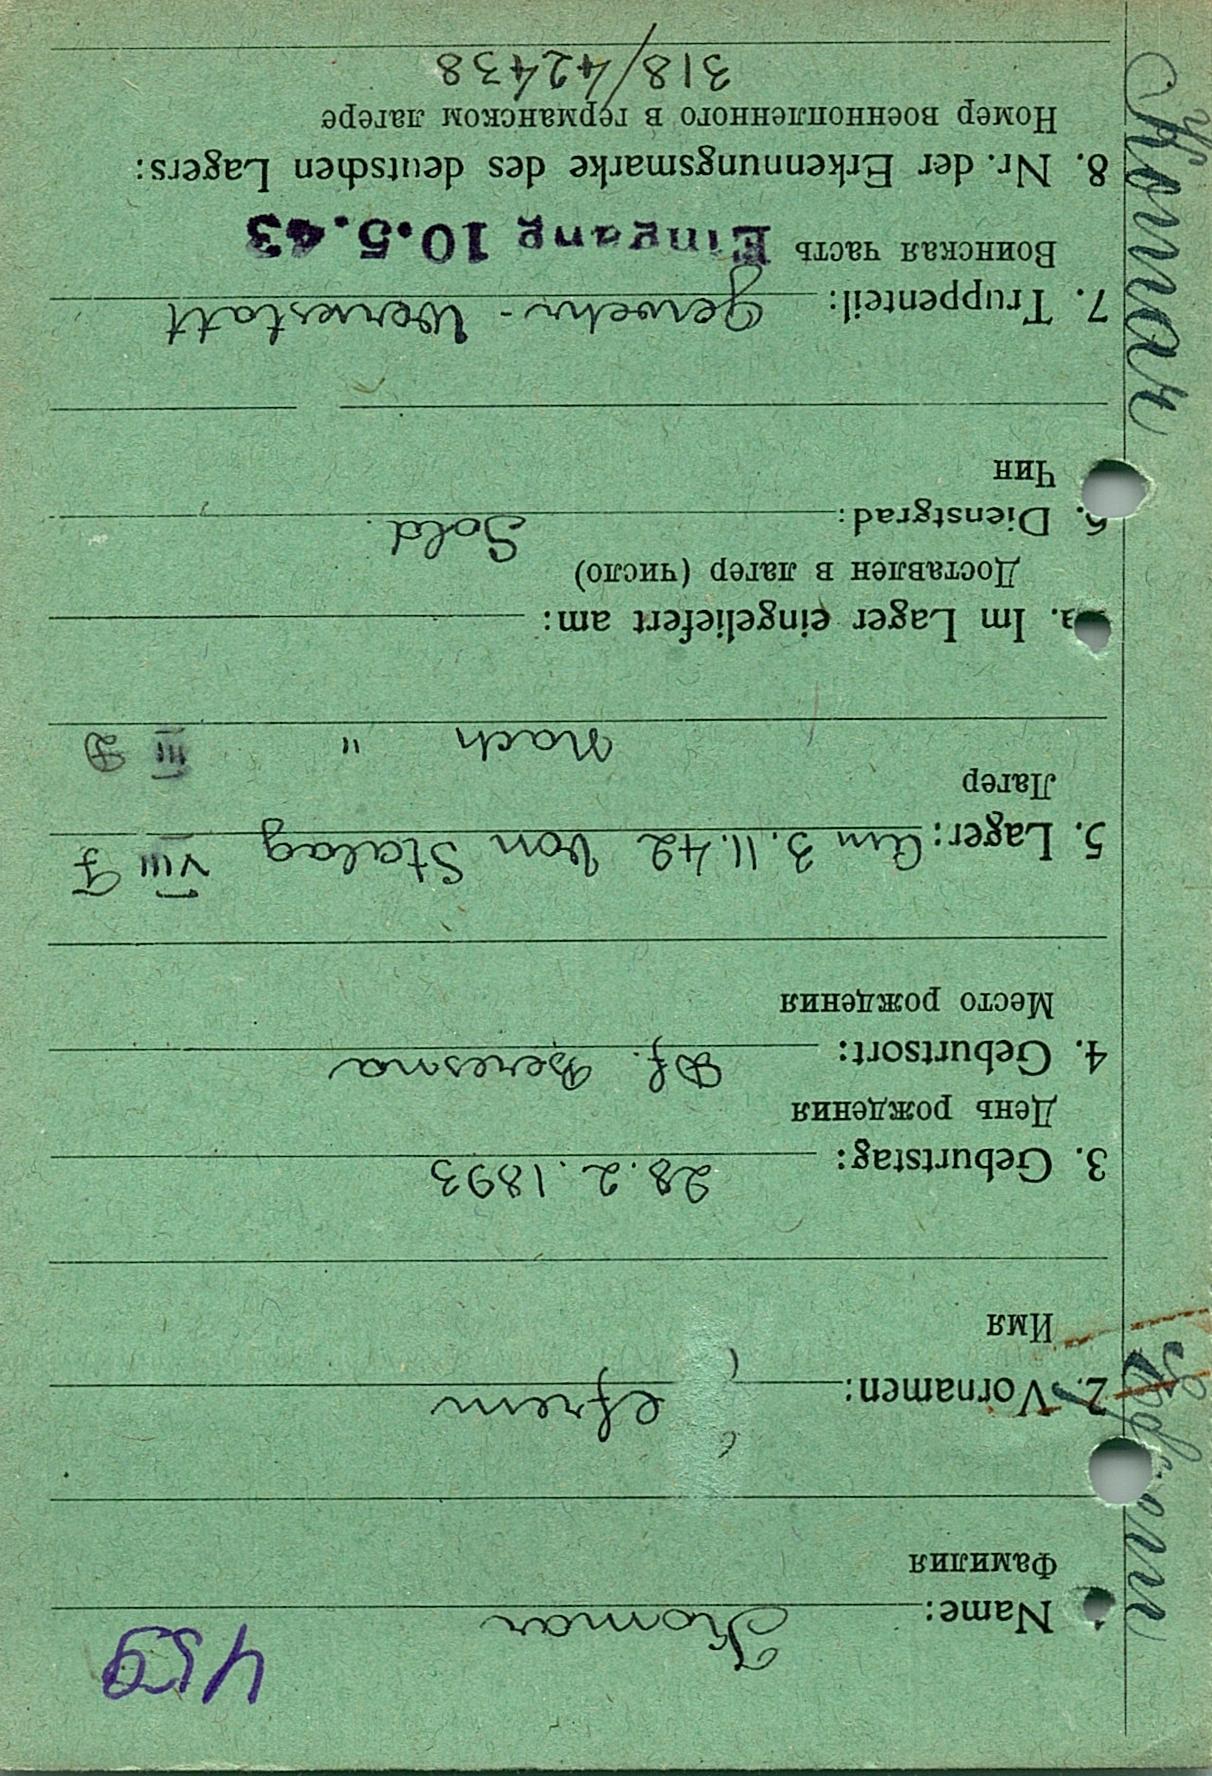 459
Name: Komar
Фамилия
2. Vornamen: Efrem
Имя
3. Geburtstag: 28.2.1893
День рождения
4. Geburtsort: Df. Beresna
Место рождения
5. Lager: Am 3.11.42 von Stalag VIII F
Лагер
nach " III D
a. Im Lager eingeliefert am:
Доставлен в лагер (число)
6. Dienstgrad: Sold.
Чин
7. Truppenteil: Gewehr-Werkstatt
Воинская часть Eingang 10.5.43
8. Nr. der Erkennungsmarke des deutschen Lagers:
Номер военнопленного в германском лагере
318/42438
Komar
Efrem